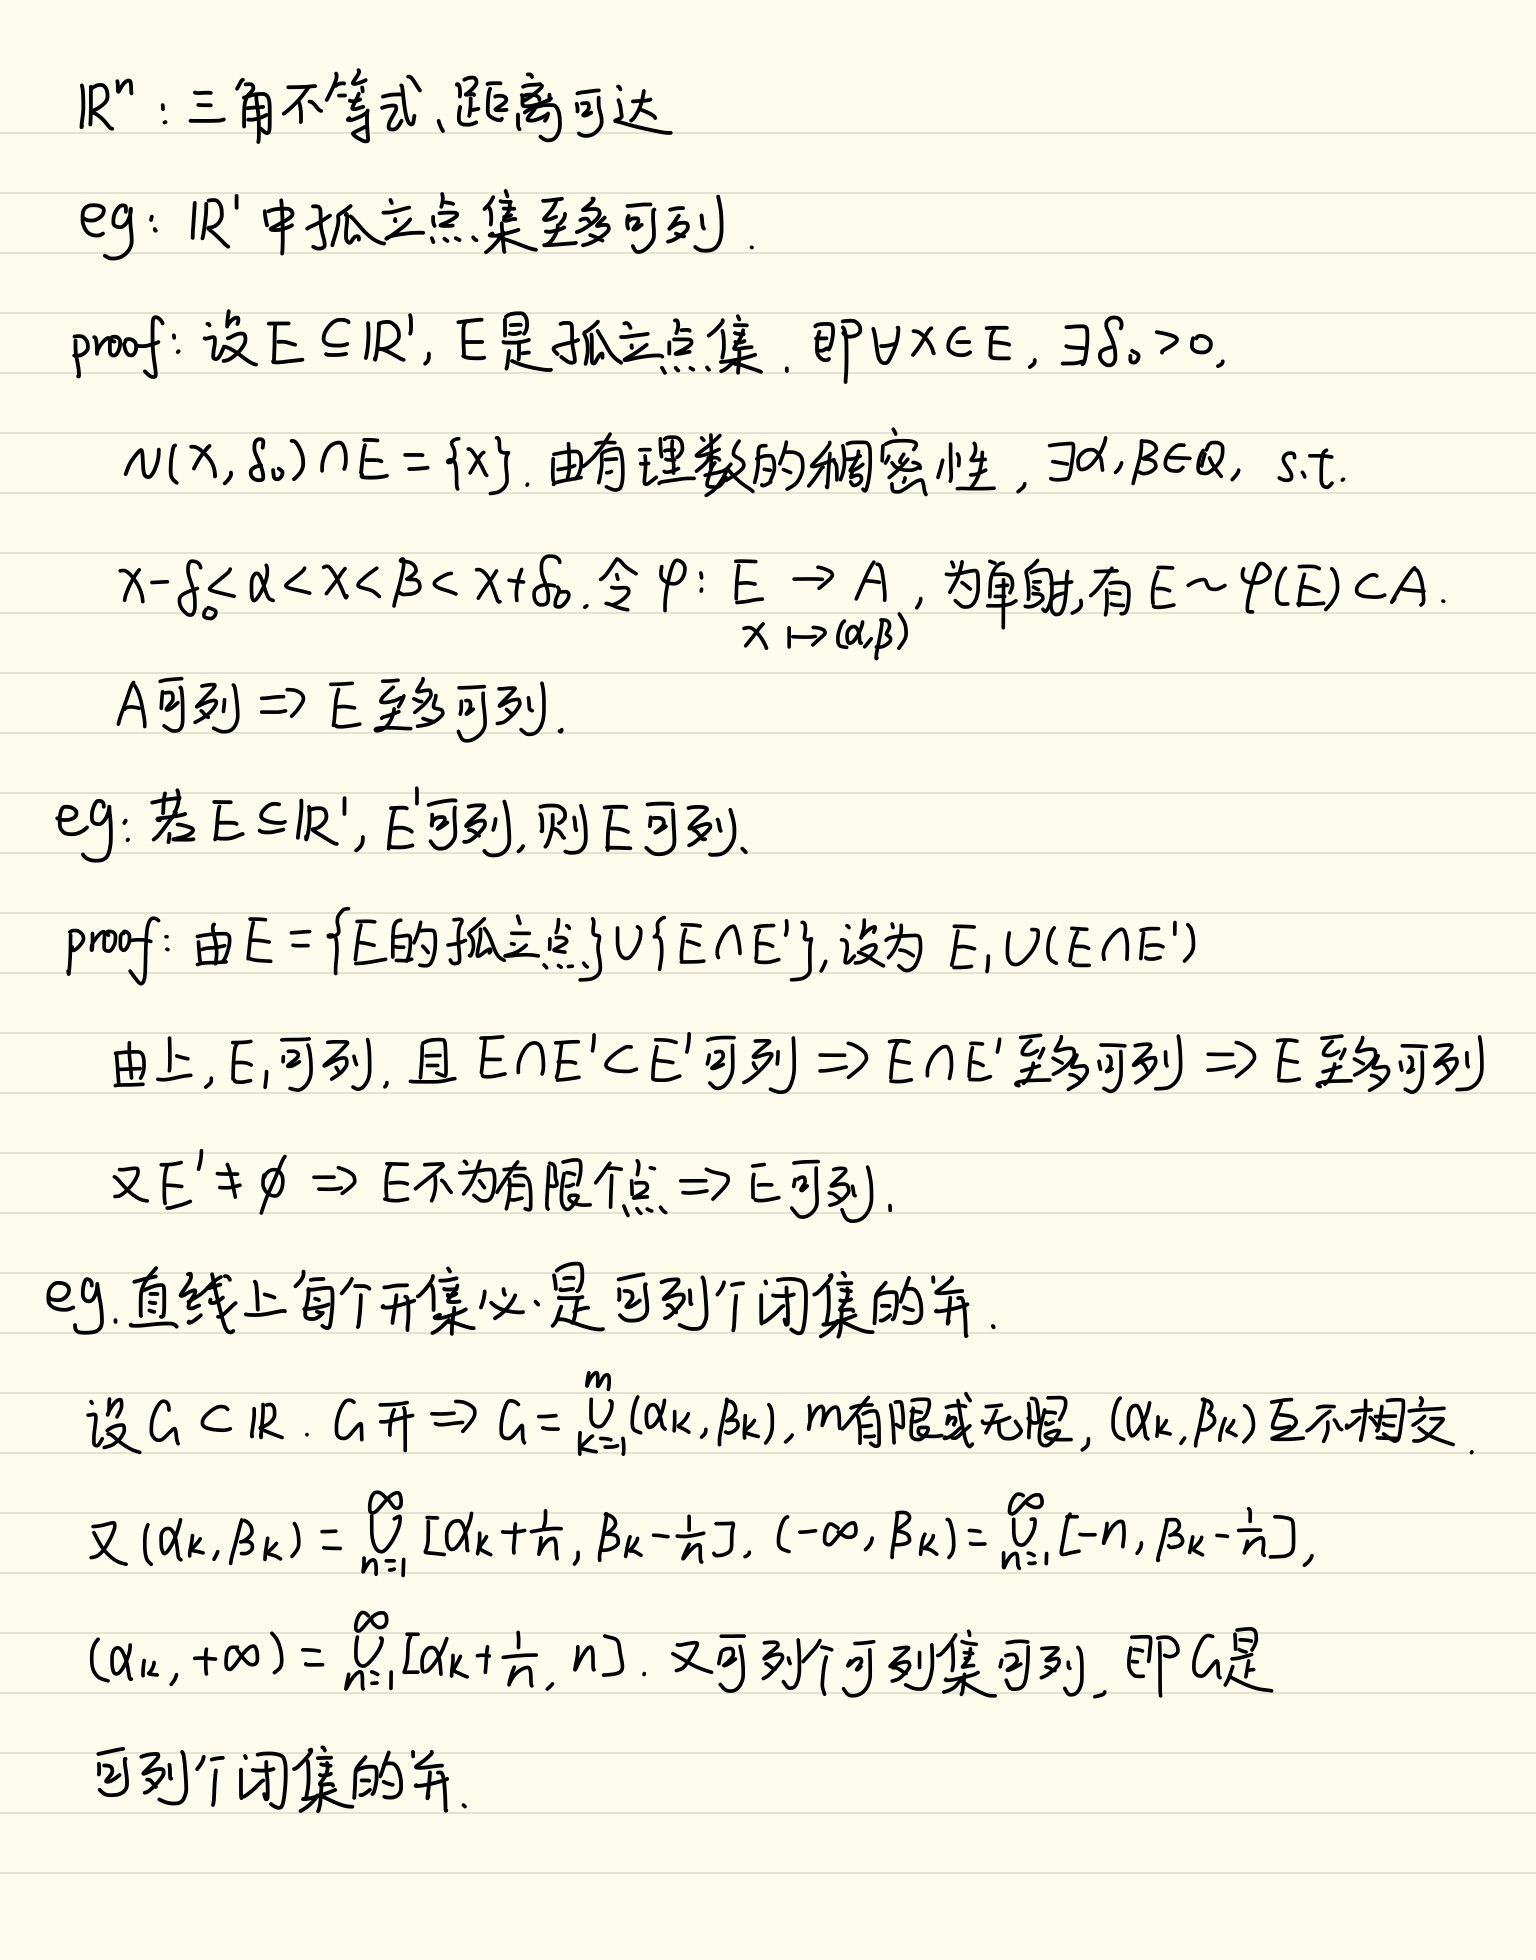 ℝⁿ：三角不等式、距离可达
eg：ℝ¹中孤立点集至多可列．
proof：设E⊆ℝ¹, E是孤立点集．即∀x∈E, ∃δ₀>0,
N(x,δ₀)∩E={x}. 由有理数的稠密性, ∃α,β∈Q, s.t.
x-δ₀<α<x<β<x+δ₀. 令φ: E→A, 为单射,有E~φ(E)⊂A.
x↦(α,β)
A可列⇒E至多可列.
eg：若E⊆ℝ¹, E'可列,则E可列.
proof：由E={E的孤立点}∪{E∩E'},设为 E₁∪(E∩E')
由上,E₁可列,且 E∩E'⊂E'可列⇒E∩E'至多可列⇒E至多可列
又E'≠∅⇒E不为有限个点⇒E可列.
eg.直线上每个开集必是可列个闭集的并.
设G⊂ℝ．G开⇒G=⋃_{k=1}^{m}(α_k,β_k),m有限或无限,(α_k,β_k)互不相交.
又(α_k,β_k)=⋃_{n=1}^{∞}[α_k+1/n,β_k-1/n], (-∞,β_k)=⋃_{n=1}^{∞}[-n,β_k-1/n],
(α_k,+∞)=⋃_{n=1}^{∞}[α_k+1/n,n]. 又可列个可列集可列,即G是
可列个闭集的并.